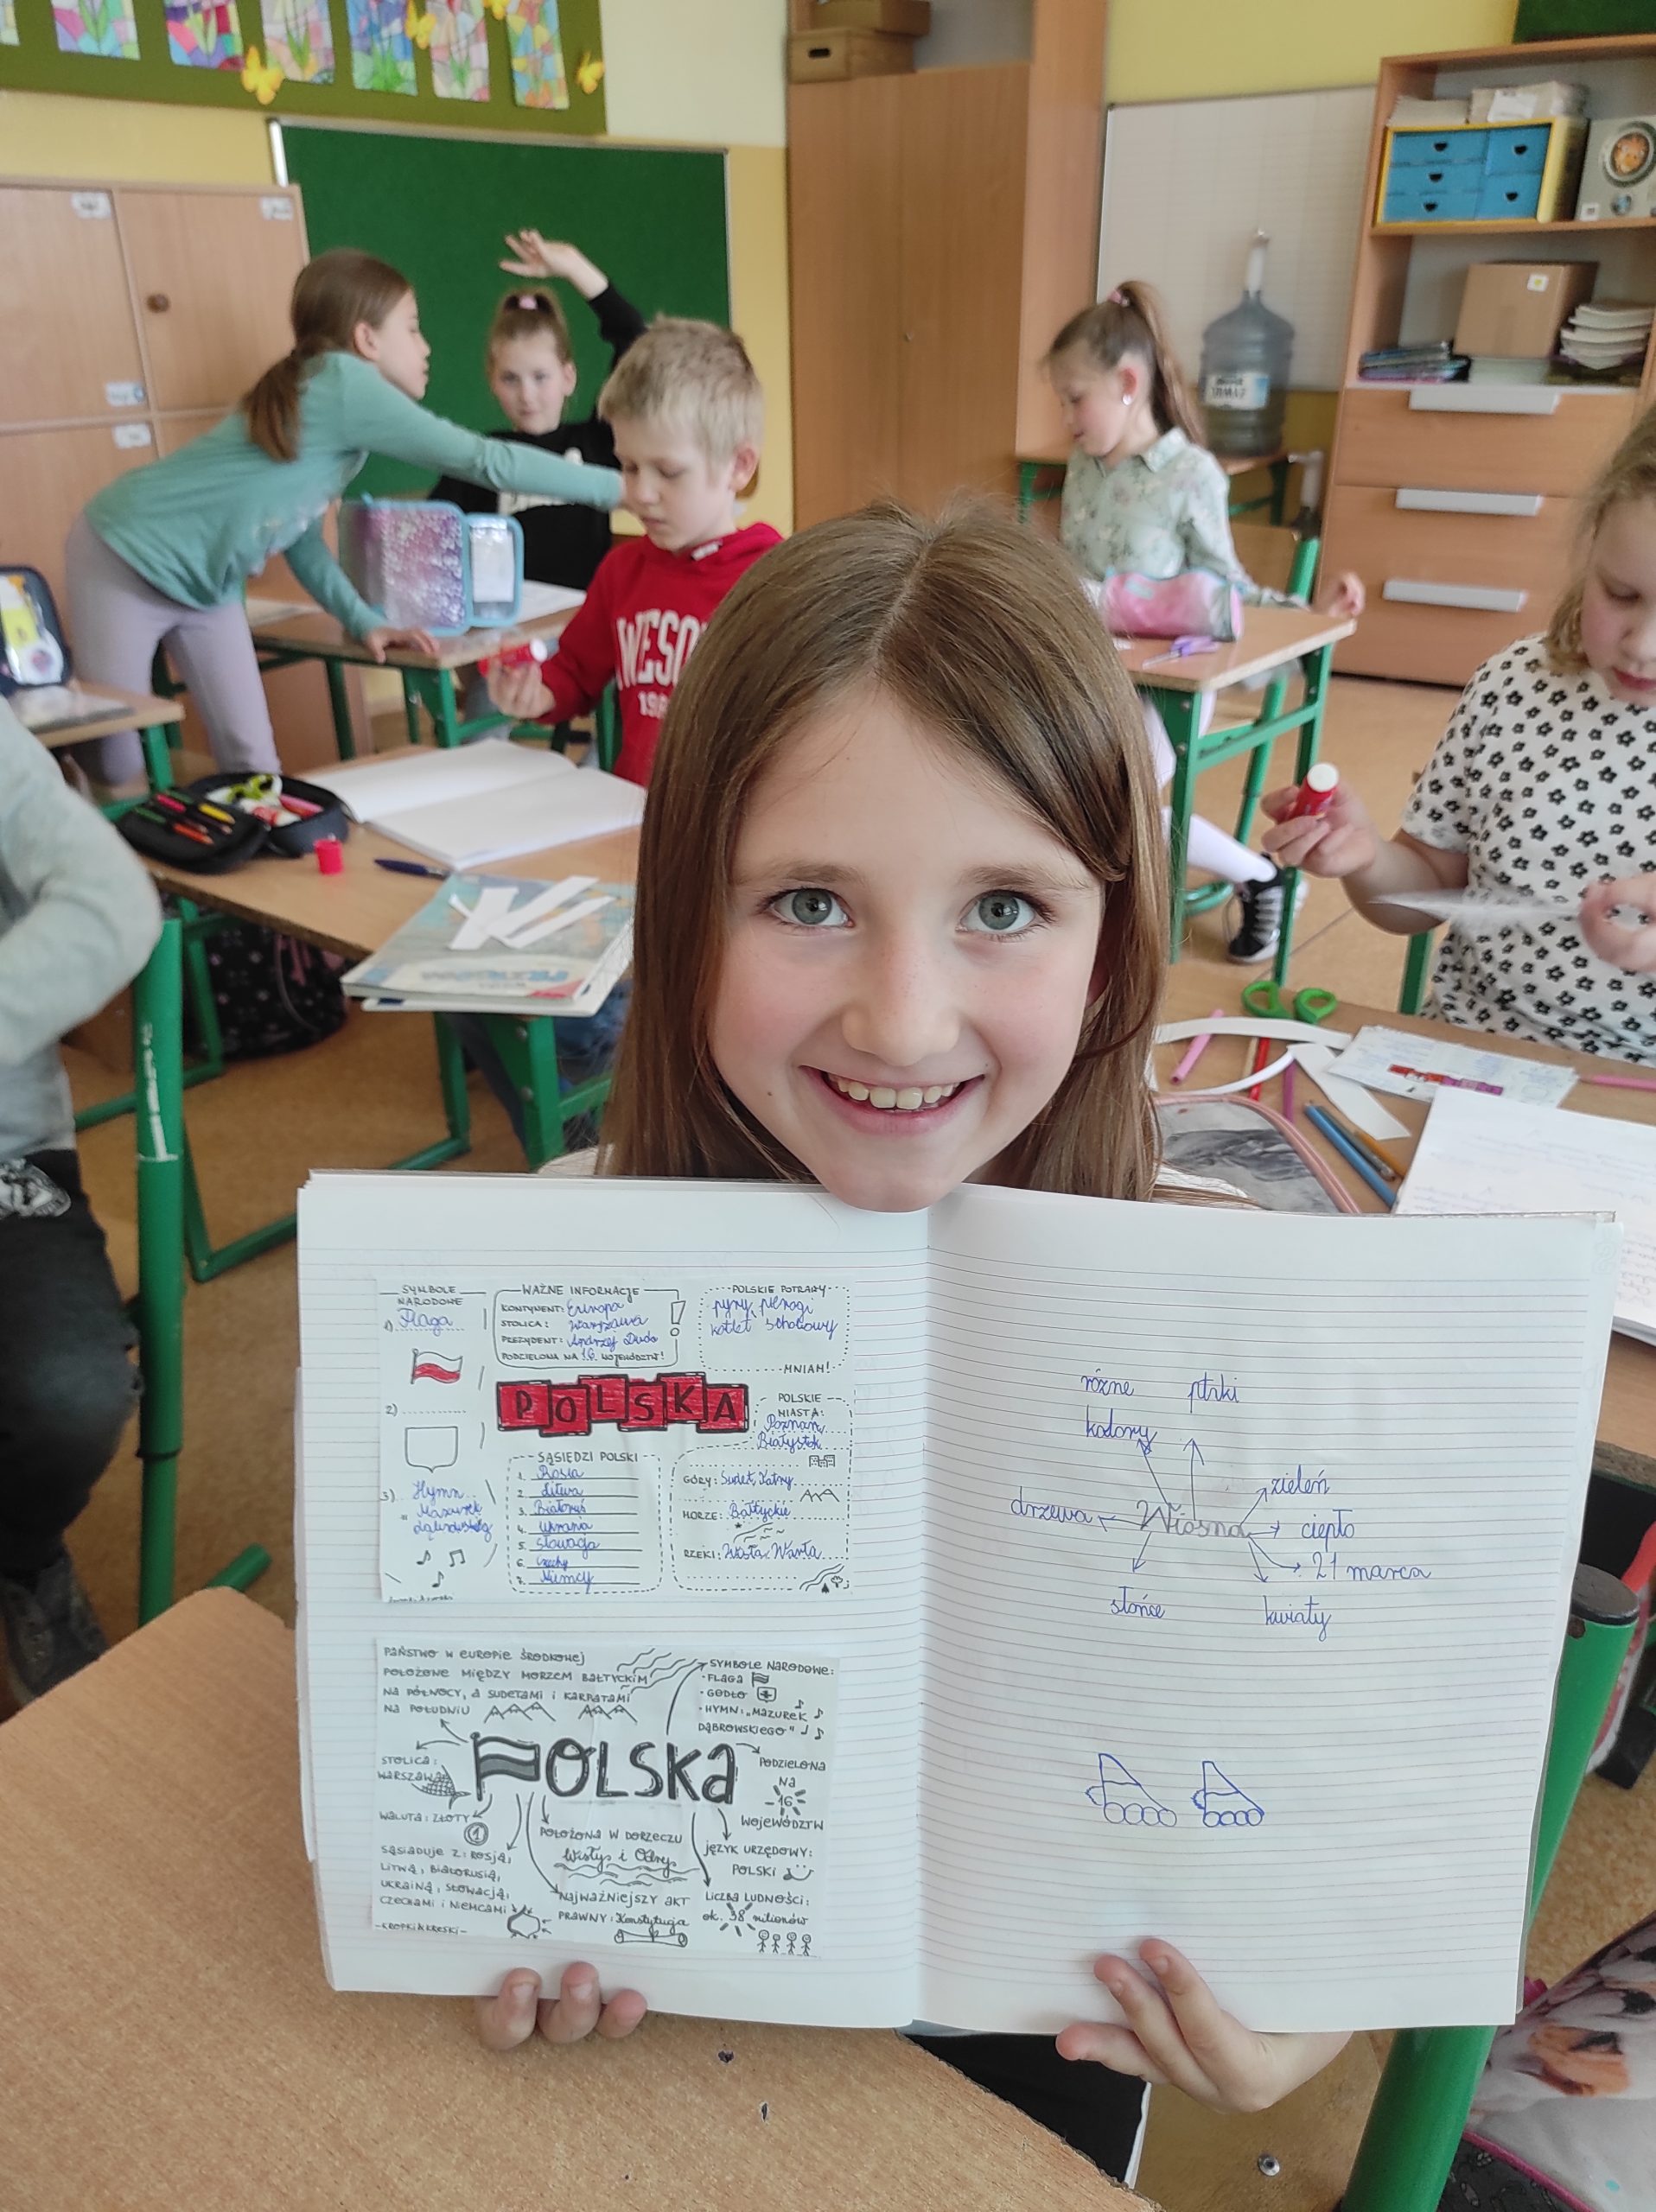 SYMBOLE
NARODOWE
1) Flaga
2)
3) Hymn
Mazurek
WAŻNE INFORMACJE
KONTYNENT: Europa
STOLICA: Warszawa
PREZYDENT: Andrzej Duda
PODZIELONA NA 16 WOJEWÓDZTW!
POLSKIE POTRAWY
pyry, pierogi
kotlet schabowy
MNIAM!
POLSKA
POLSKIE
MIASTA:
Poznań,
Białystok
SĄSIEDZI POLSKI
1. Rosja
2. Litwa
3. Białoruś
4. Ukraina
5. Słowacja
6. Czechy
7. Niemcy
GÓRY: Sudet, Tatry
MORZE: Bałtyckie
RZEKI: Wisła, Warta
PAŃSTWO W EUROPIE ŚRODKOWEJ
POŁOŻONE MIĘDZY MORZEM BAŁTYCKIM
NA PÓŁNOCY, A SUDETAMI I KARPATAMI
NA POŁUDNIU
SYMBOLE NARODOWE:
• FLAGA
• GODŁO
• HYMN: „MAZUREK
DĄBROWSKIEGO"
STOLICA:
WARSZAWA
POLSKA
PODZIELONA
NA
16
WOJEWÓDZTW
WALUTA: ZŁOTY
1
POŁOŻONA W DORZECZU
Wisły i Odry
JĘZYK URZĘDOWY:
POLSKI
SĄSIADUJE Z: ROSJĄ,
LITWĄ, BIAŁORUSIĄ,
UKRAINĄ, SŁOWACJĄ,
CZECHAMI I NIEMCAMI
NAJWAŻNIEJSZY AKT
PRAWNY: Konstytucja
LICZBA LUDNOŚCI:
ok. 38 milionów
-KROPKI&KRESKI-
różne
kolory
ptaki
zieleń
drzewa
Wiosna
ciepło
21 marca
słońce
kwiaty